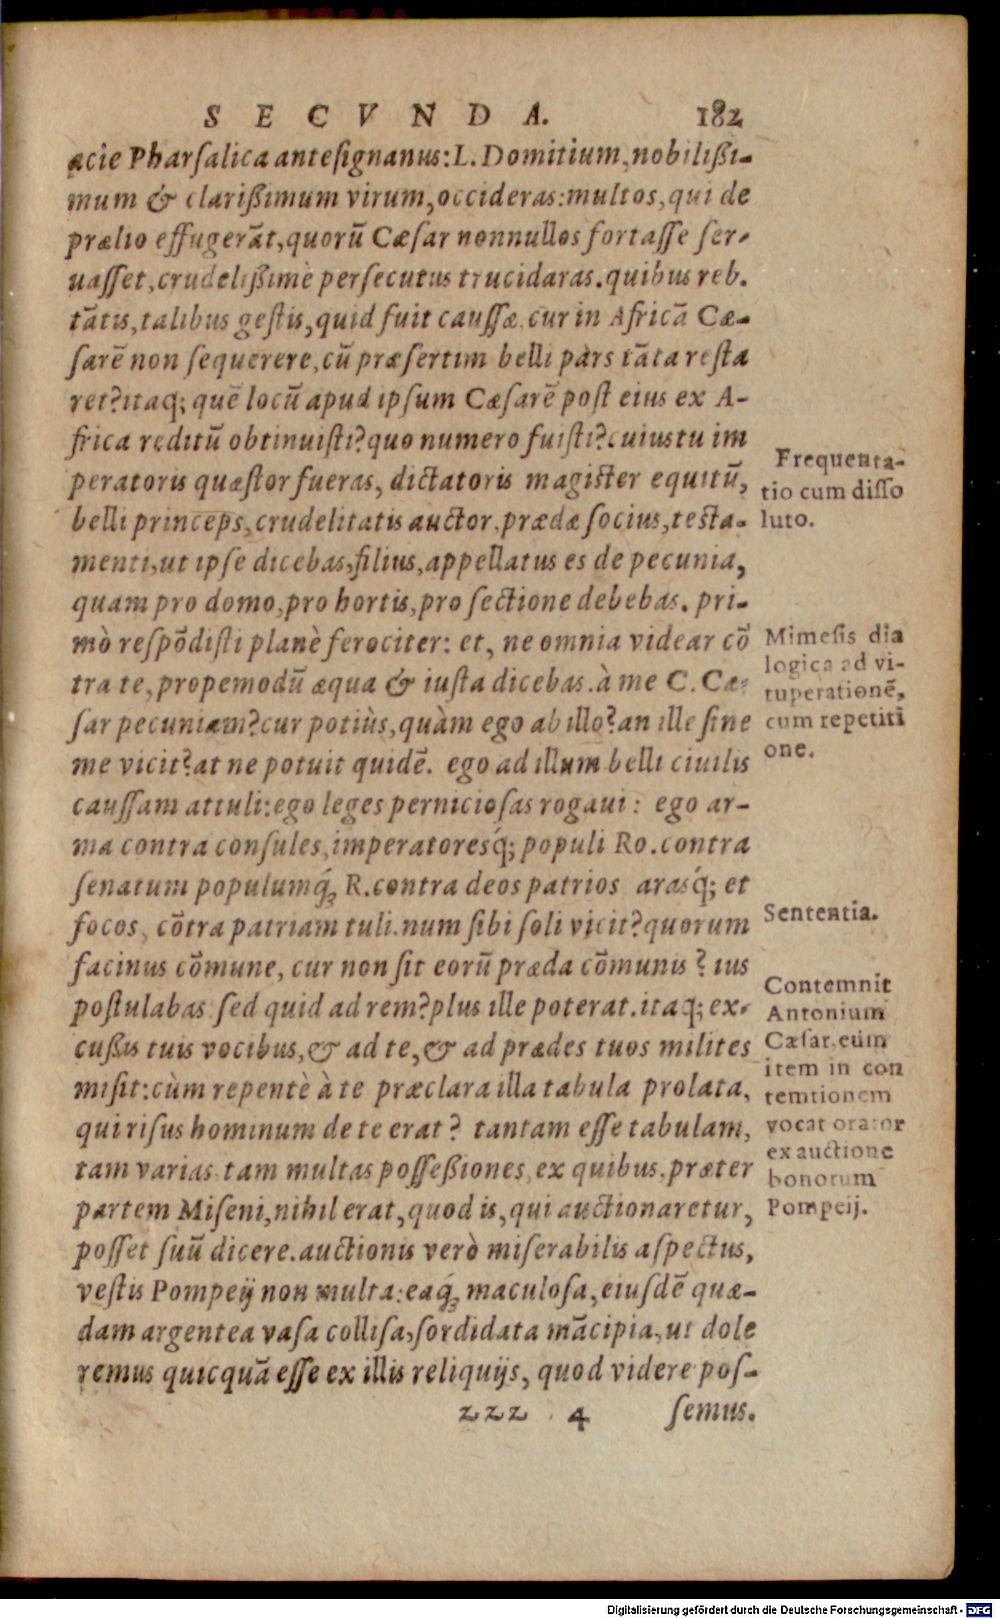 SECVNDA. 182
acie Pharsalica antesignanus: L. Domitium, nobilißi-
mum & clarißimum virum, occideras: multos, qui de
prælio effugerāt, quorū Cæsar nonnullos fortasse ser-
uasset, crudelißimè persecutus trucidaras. quibus reb.
tātis, talibus gestis, quid fuit caussæ, cur in Africā Cæ-
sarē non sequerere, cū præsertim belli pars tāta resta
ret? itaq; quē locū apud ipsum Cæsarē post eius ex A-
frica reditū obtinuisti? quo numero fuisti? cuius tu im
peratoris quæstor fueras, dictatoris magister equitū,
belli princeps, crudelitatis auctor, prædæ socius, testa-
menti, ut ipse dicebas, filius, appellatus es de pecunia,
quam pro domo, pro hortis, pro sectione debebas. pri-
mò respōdisti planè ferociter: et, ne omnia videar cō
tra te, propemodū æqua & iusta dicebas. à me C. Cæ-
sar pecuniam? cur potiùs, quàm ego ab illo? an ille sine
me vicit? at ne potuit quidē. ego ad illum belli ciuilis
caussam attuli: ego leges perniciosas rogaui: ego ar-
ma contra consules, imperatoresq́; populi Ro. contra
senatum populumq́; R. contra deos patrios arasq́; et
focos, cōtra patriam tuli. num sibi soli vicit? quorum
facinus cōmune, cur non sit eorū præda cōmunis? ius
postulabas sed quid ad rem? plus ille poterat. itaq; ex-
cußis tuis vocibus, & ad te, & ad prædes tuos milites
misit: cùm repentè à te præclara illa tabula prolata,
qui risus hominum de te erat? tantam esse tabulam,
tam varias tam multas possessiones, ex quibus, præter
partem Miseni, nihil erat, quod is, qui auctionaretur,
posset suū dicere. auctionis verò miserabilis aspectus,
vestis Pompeij non multa: eaq́; maculosa, eiusdē quæ-
dam argentea vasa collisa, sordidata mācipia, ut dole
remus quicquā esse ex illis reliquijs, quod videre pos-
zzz 4 semus.
Frequenta-
tio cum disso
luto.
Mimesis dia
logica ad vi-
tuperationē,
cum repetiti
one.
Sententia.
Contemnit
Antonium
Cæsar, eum
item in con
temtionem
vocat orator
ex auctione
bonorum
Pompeij.
Digitalisierung gefördert durch die Deutsche Forschungsgemeinschaft - DFG